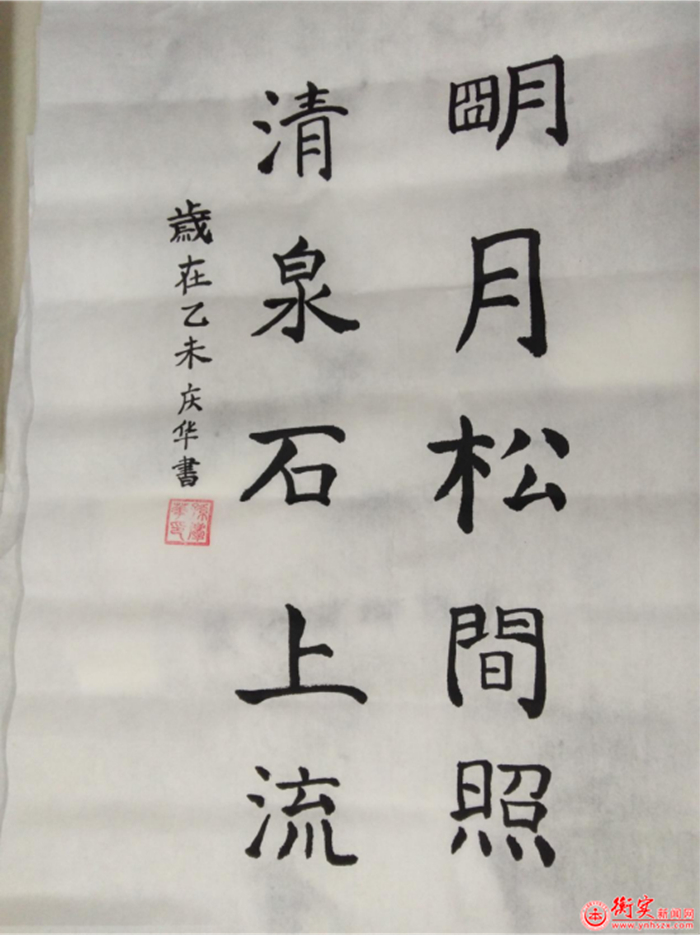 明月松間照
清泉石上流
歲在乙未庆华書
衡实新闻网
www.ynhszx.com